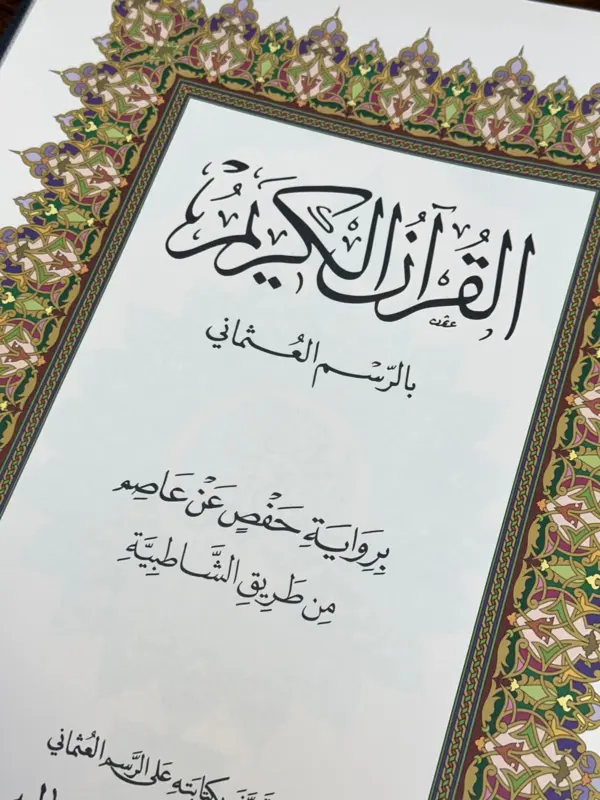 القُرآنُ الكَرِيمُ
بالرّسْمِ العُثماني
بِرِوَايَةِ حَفْصٍ عَنْ عَاصِمٍ
مِن طَرِيقِ الشَّاطِبِيَّةِ
بكتابتِهِ عَلَى الرَّسمِ العُثماني